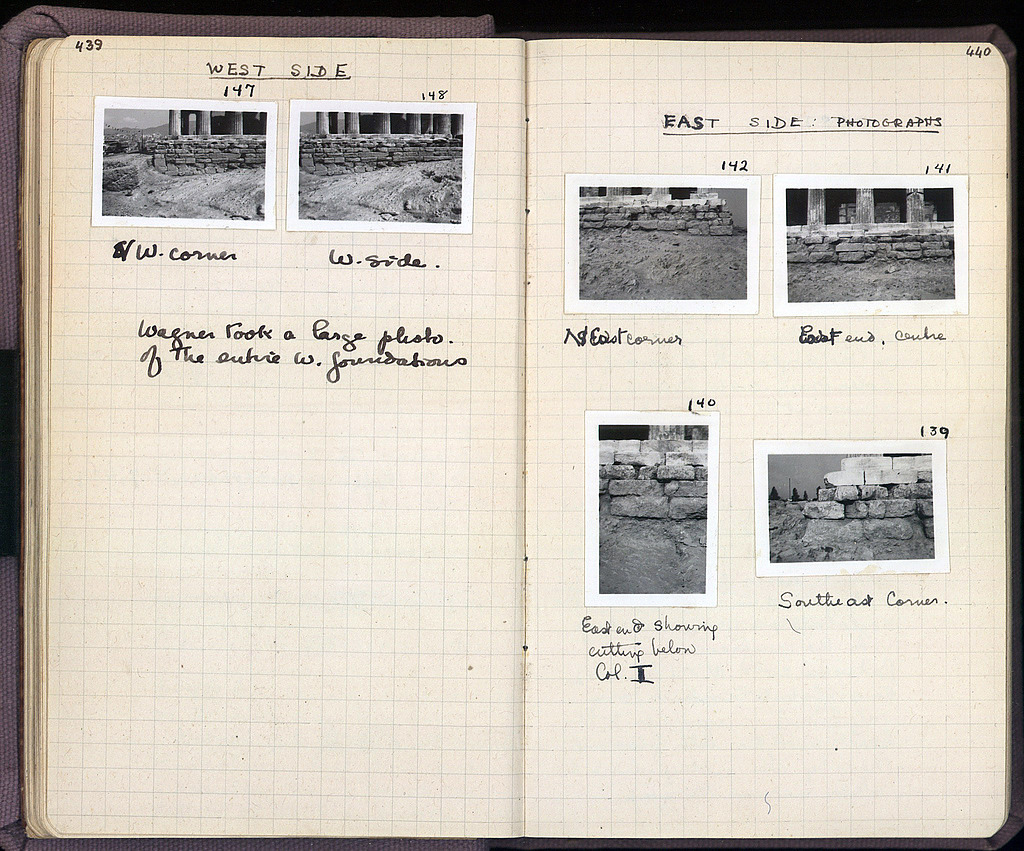 439
WEST SIDE
147
148
N W. corner
W. side.
Wagner took a large photo.
of the entire W. foundations
440
EAST SIDE: PHOTOGRAPHS
142
141
N East corner
East end, centre
140
139
East end showing
cutting below
Col. II
Southeast Corner.